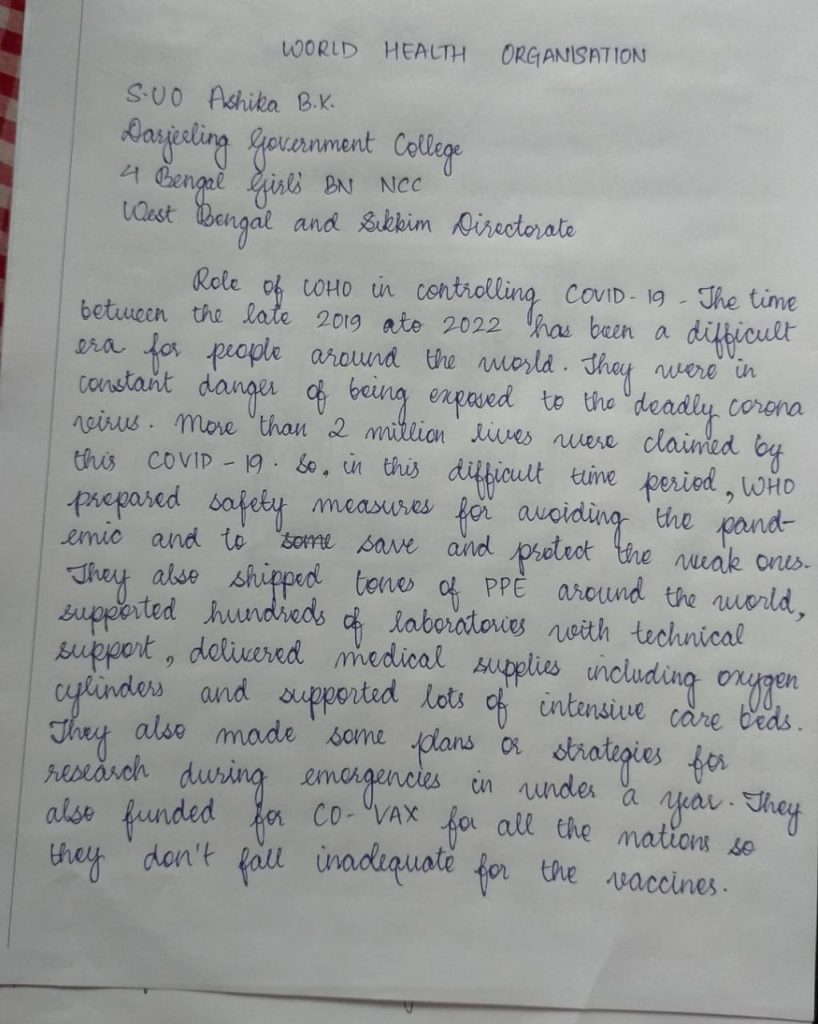 WORLD HEALTH ORGANISATION
S.UO Ashika B.K.
Darjeeling Government College
4 Bengal Girls' BN NCC
West Bengal and Sikkim Directorate
Role of WHO in controlling COVID-19 - The time
between the late 2019 ato 2022 has been a difficult
era for people around the world. They were in
constant danger of being exposed to the deadly corona
virus. More than 2 million lives were claimed by
this COVID-19. So, in this difficult time period, WHO
prepared safety measures for avoiding the pand-
emic and to some save and protect the weak ones.
They also shipped tones of PPE around the world,
supported hundreds of laboratories with technical
support, delivered medical supplies including oxygen
cylinders and supported lots of intensive care beds.
They also made some plans or strategies for
research during emergencies in under a year. They
also funded for CO-VAX for all the nations so
they don't fall inadequate for the vaccines.